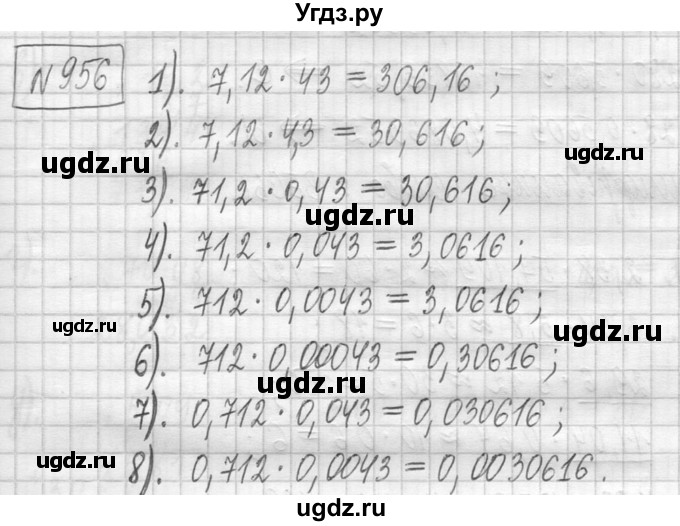 Угдз.ру
N956
1). 7,12 · 43 = 306,16 ;
2). 7,12 · 4,3 = 30,616 ;
ugdz.ru
ugdz.ru
3). 71,2 · 0,43 = 30,616 ;
ugdz.ru
4). 71,2 · 0,043 = 3,0616 ;
5). 712 · 0,0043 = 3,0616 ;
ugdz.ru
ugdz.ru
6). 712 · 0,00043 = 0,30616 ;
ugdz.ru
7). 0,712 · 0,043 = 0,030616 ;
8). 0,712 · 0,0043 = 0,0030616 .
ugdz.ru
ugdz.ru